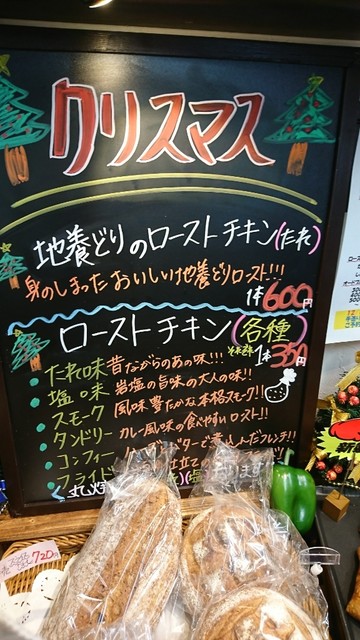 クリスマス
地養どりのローストチキン(たれ)
身のしまったおいしい地養どりロースト!!!
1本600円
ローストチキン(各種)
それぞれ 1本350円
たれ味 昔ながらのあの味!!!
塩味 岩塩の旨味の大人の味!!
スモーク 風味豊かな本格スモーク!!
タンドリー カレー風味の食べやすいロースト!!
コンフィー で煮込んだフレンチ!!
フライド 仕立て
720円